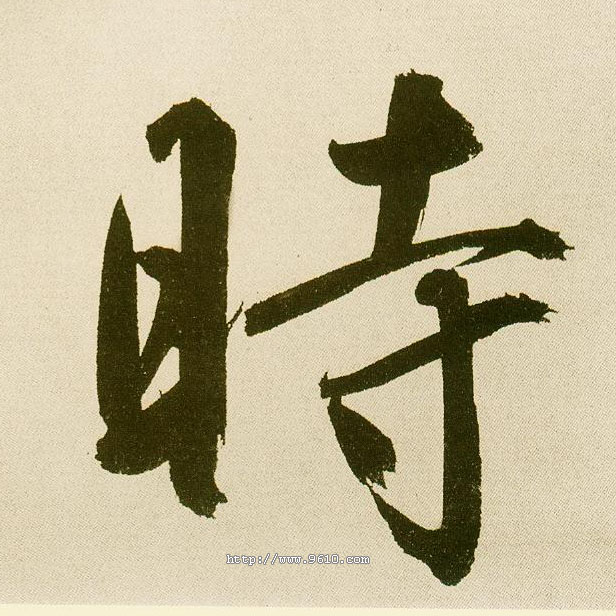 時
http://www.9610.com